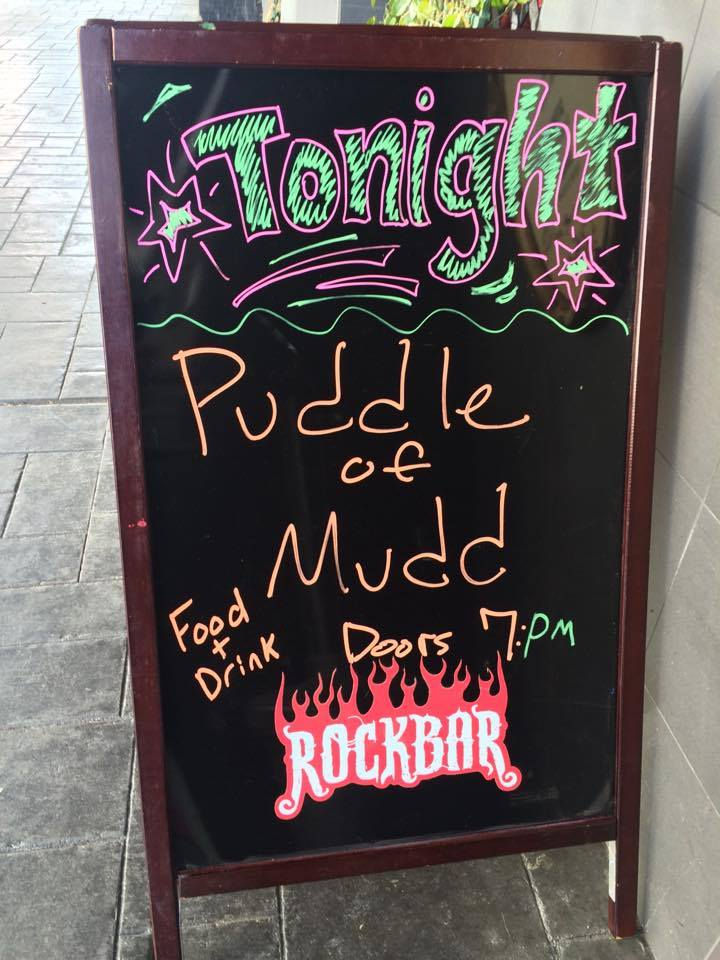 Tonight
Puddle
of
Mudd
Food
+
Drink
Doors 7:PM
ROCKBAR